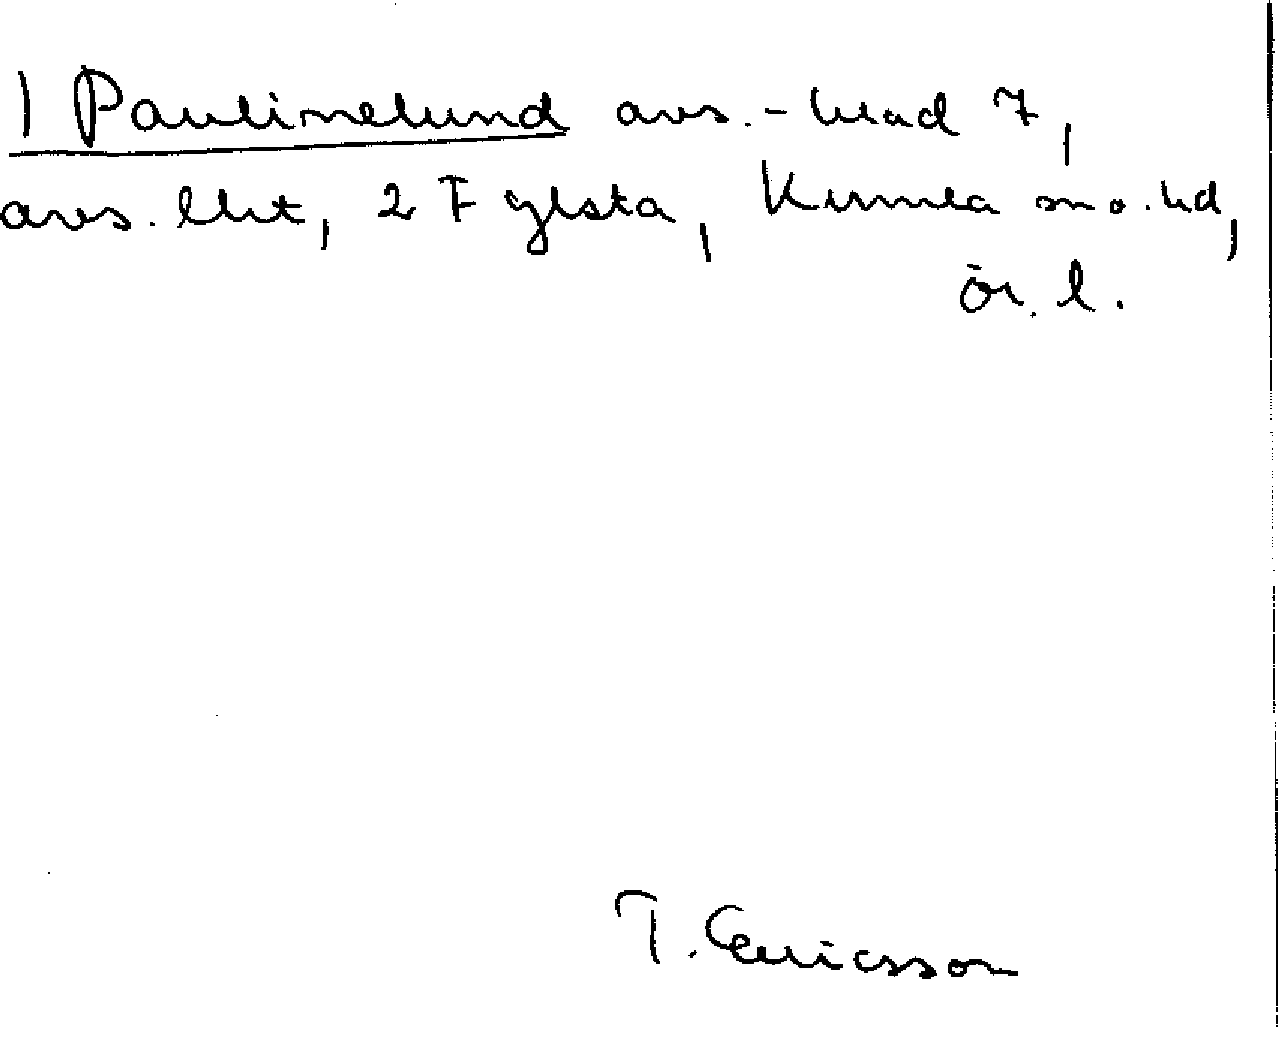 1 Paulinelund avs.-blad 7,
avs. lht, 2 Fylsta, Kumla sn o. hd,
ör. l.
T. Ericsson